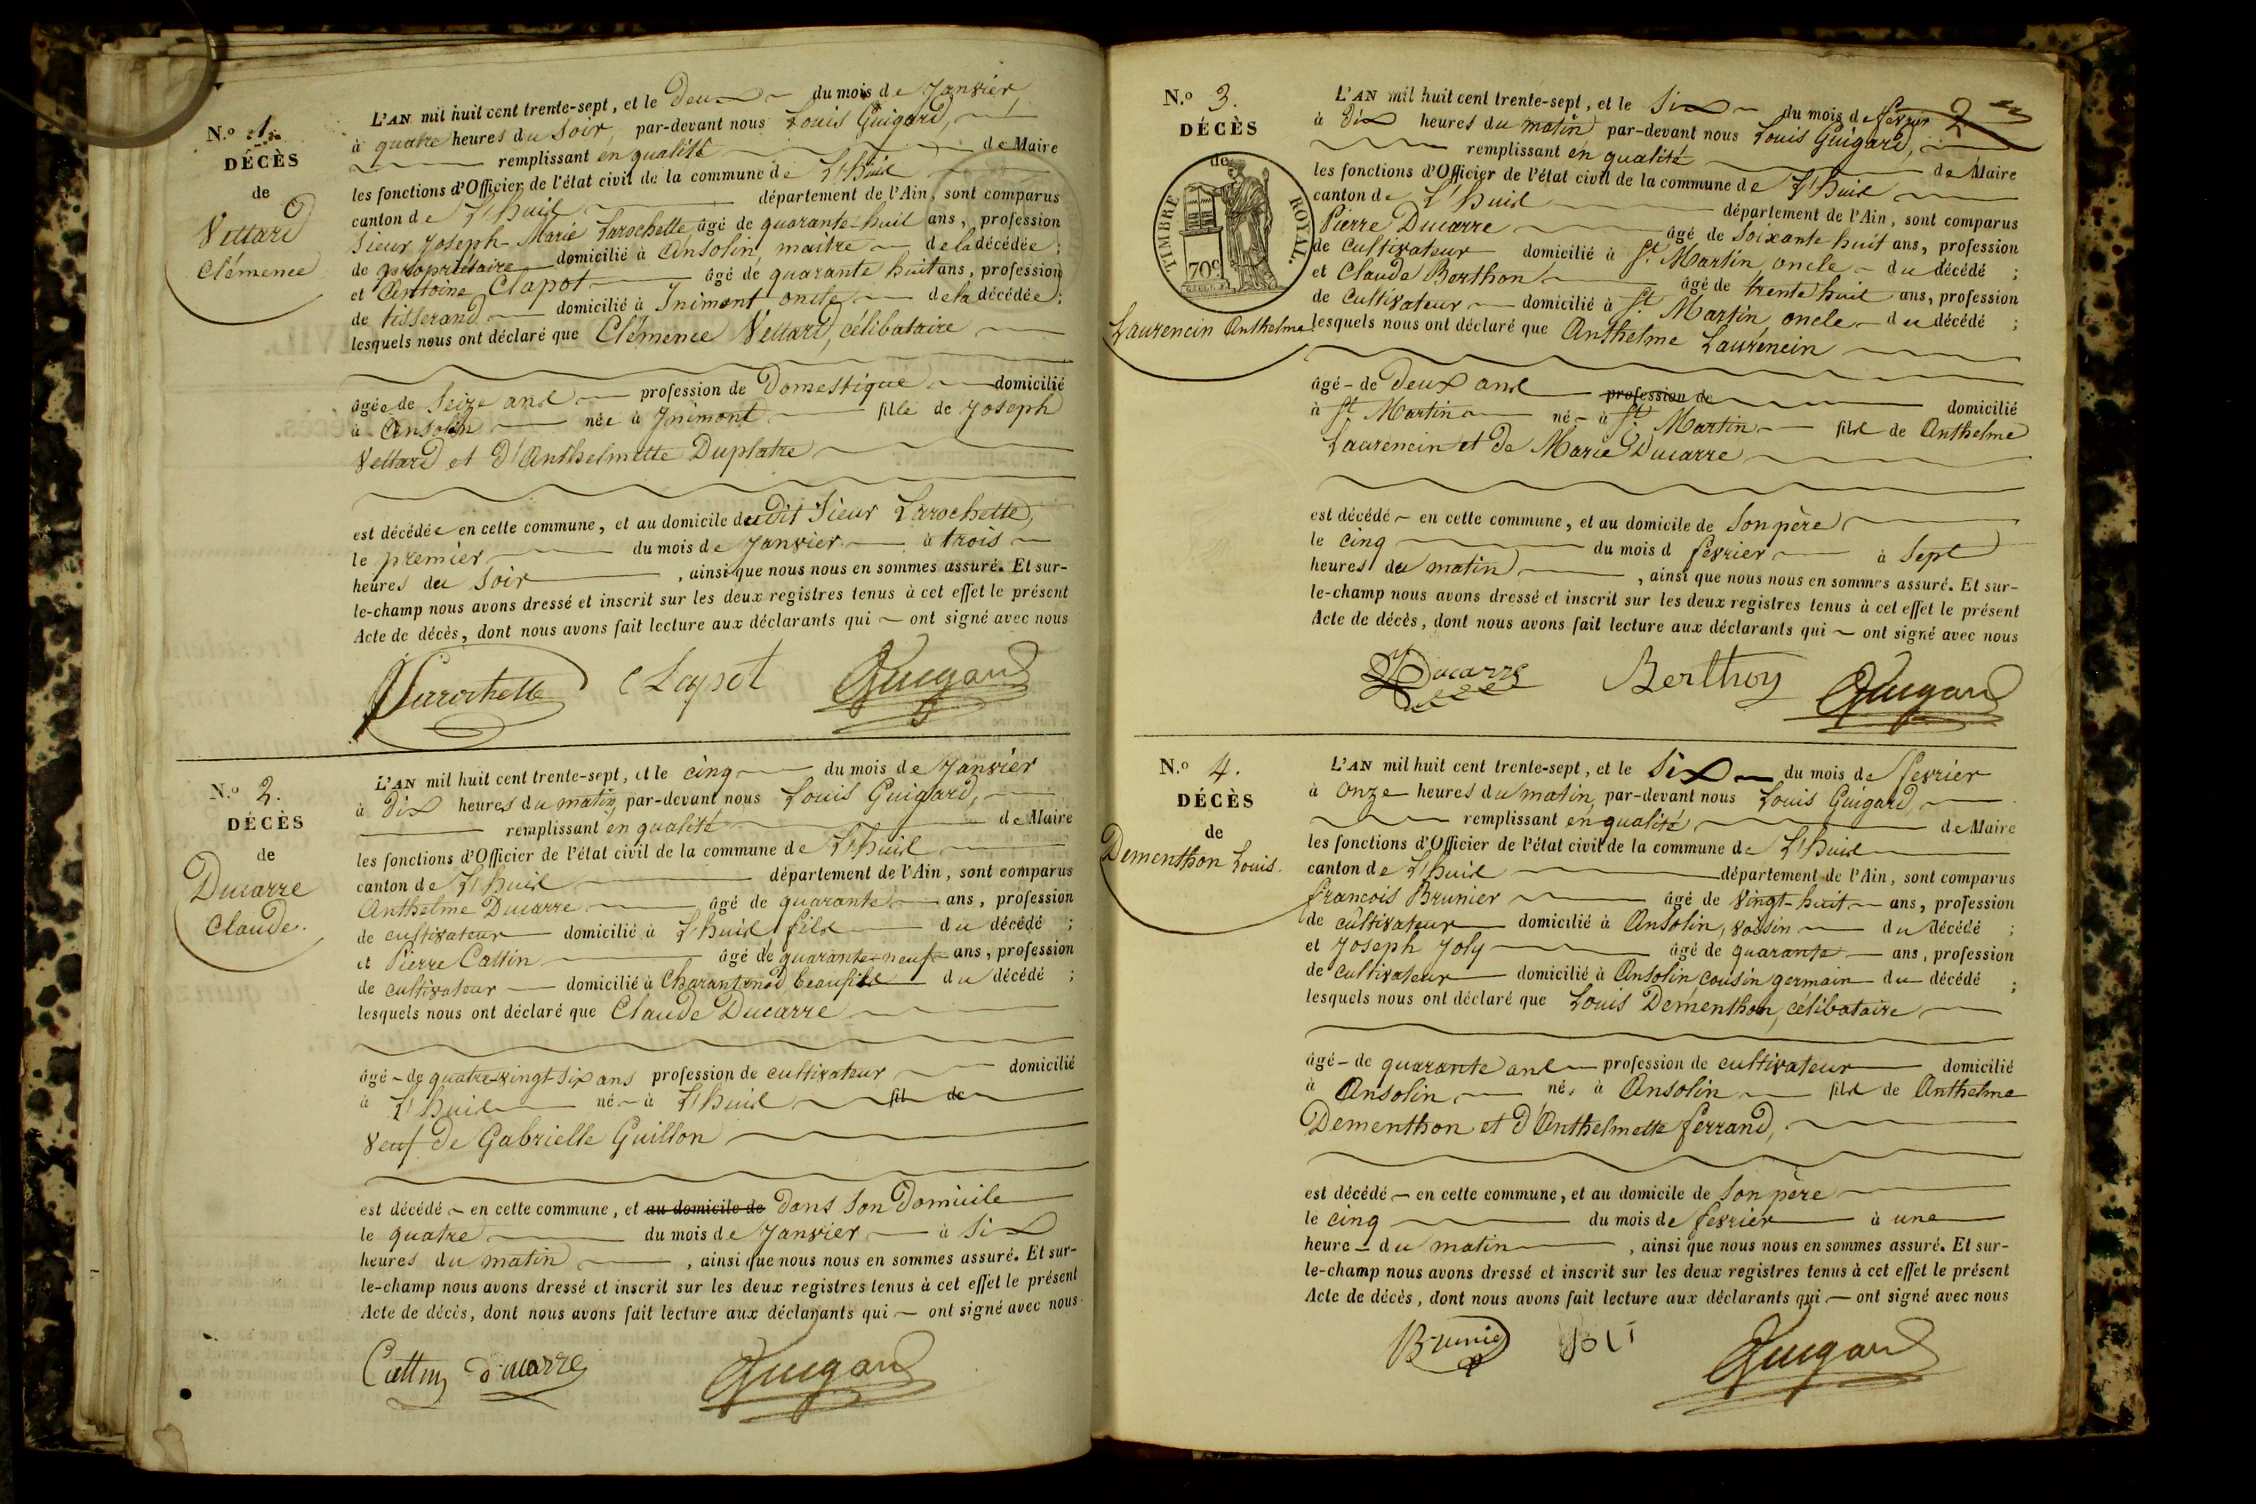 N.o 1.
DÉCÈS
de
Vettard
Clémence
L'AN mil huit cent trente-sept, et le deux du mois de Janvier
à quatre heures du Soir, par-devant nous Louis Guigard,
remplissant en qualité de Maire
les fonctions d'Officier de l'état civil de la commune de L'huis
canton de L'huis département de l'Ain, sont comparus
Sieur Joseph-Marie Larochette, âgé de quarante-huit ans, profession
de propriétaire domicilié à Ansolin, maître de la décédée;
et Antoine Clapot âgé de quarante huit ans, profession
de tisserand domicilié à Inimont oncle de la décédée;
lesquels nous ont déclaré que Clémence Vettard, célibataire
âgée de Seize ans profession de Domestique domicilié
à Ansolin née à Inimont fille de Joseph
Vettard et d'Anthelmette Duplatre
est décédée en cette commune, et au domicile du dit Sieur Larochette,
le premier du mois de Janvier à trois
heures du Soir, ainsi que nous nous en sommes assuré. Et sur-
le-champ nous avons dressé et inscrit sur les deux registres tenus à cet effet le présent
Acte de décès, dont nous avons fait lecture aux déclarants qui ont signé avec nous
Larochette Clapot Guigard
N.o 2.
DÉCÈS
de
Ducarre
Claude.
L'AN mil huit cent trente-sept, et le cinq du mois de Janvier
à Dix heures du matin, par-devant nous Louis Guigard,
remplissant en qualité de Maire
les fonctions d'Officier de l'état civil de la commune de L'huis
canton de L'huis département de l'Ain, sont comparus
Anthelme Ducarre âgé de quarante ans, profession
de cultivateur domicilié à L'huis fils du décédé;
et Pierre Cattin âgé de quarante-neuf ans, profession
de cultivateur domicilié à Charantonod beaufils du décédé;
lesquels nous ont déclaré que Claude Ducarre
âgé de quatre-vingt-six ans profession de cultivateur domicilié
à L'huis né à L'huis fil de
Veuf de Gabrielle Guillon
est décédé en cette commune, et au domicile de Dans Son Domicile
le quatre du mois de Janvier à Six
heures du matin, ainsi que nous nous en sommes assuré. Et sur-
le-champ nous avons dressé et inscrit sur les deux registres tenus à cet effet le présent
Acte de décès, dont nous avons fait lecture aux déclarants qui ont signé avec nous
Cattin ducarre Guigard
2
N.o 3.
DÉCÈS
de
TIMBRE ROYAL.
70c
Laurencin Anthelme
L'AN mil huit cent trente-sept, et le Six du mois de fevrier
à Dix heures du matin par-devant nous Louis Guigard,
remplissant en qualité de Maire
les fonctions d'Officier de l'état civil de la commune de L'huis
canton de L'huis département de l'Ain, sont comparus
Pierre Ducarre âgé de Soixante huit ans, profession
de cultivateur domicilié à St. Martin, oncle du décédé;
et Claude Berthon âgé de trente huit ans, profession
de cultivateur domicilié à St. Martin oncle du décédé;
lesquels nous ont déclaré que Anthelme Laurencin
âgé de Deux ans profession de domicilié
à St. Martin né à St. Martin fils de Anthelme
Laurencin et de Marie Ducarre
est décédé en cette commune, et au domicile de Son père
le cinq du mois d fevrier à Sept
heures du matin, ainsi que nous nous en sommes assuré. Et sur-
le-champ nous avons dressé et inscrit sur les deux registres tenus à cet effet le présent
Acte de décès, dont nous avons fait lecture aux déclarants qui ont signé avec nous
Ducarre Berthon Guigard
N.o 4.
DÉCÈS
de
Dementhon Louis.
L'AN mil huit cent trente-sept, et le Six du mois de fevrier
à Onze heures du matin, par-devant nous Louis Guigard,
remplissant en qualité de Maire
les fonctions d'Officier de l'état civil de la commune de L'huis
canton de L'huis département de l'Ain, sont comparus
francois Brunier âgé de Vingt-huit ans, profession
de cultivateur domicilié à Ansolin, voisin du décédé;
et Joseph Joly âgé de quarante ans, profession
de cultivateur domicilié à Ansolin, cousin germain du décédé;
lesquels nous ont déclaré que Louis Dementhon, célibataire
âgé de quarante ans profession de cultivateur domicilié
à Ansolin né à Ansolin fils de Anthelme
Dementhon et d'Anthelmette ferrand,
est décédé en cette commune, et au domicile de Son père
le cinq du mois de fevrier à une
heure du matin, ainsi que nous nous en sommes assuré. Et sur-
le-champ nous avons dressé et inscrit sur les deux registres tenus à cet effet le présent
Acte de décès, dont nous avons fait lecture aux déclarants qui ont signé avec nous
Brunie Joli Guigard